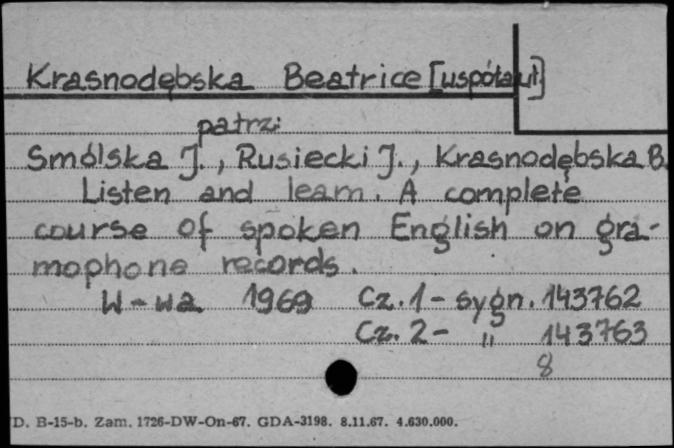 Krasnodębska Beatrice [współaut]
patrz:
Smólska J., Rusiecki J., Krasnodębska B.
Listen and learn. A complete
course of spoken English on gra-
mophone records.
W-wa 1969 Cz. 1 - sygn. 143762
Cz. 2 - " 143763
8
D. B-15-b. Zam. 1726-DW-On-67. GDA-3198. 8.11.67. 4.630.000.